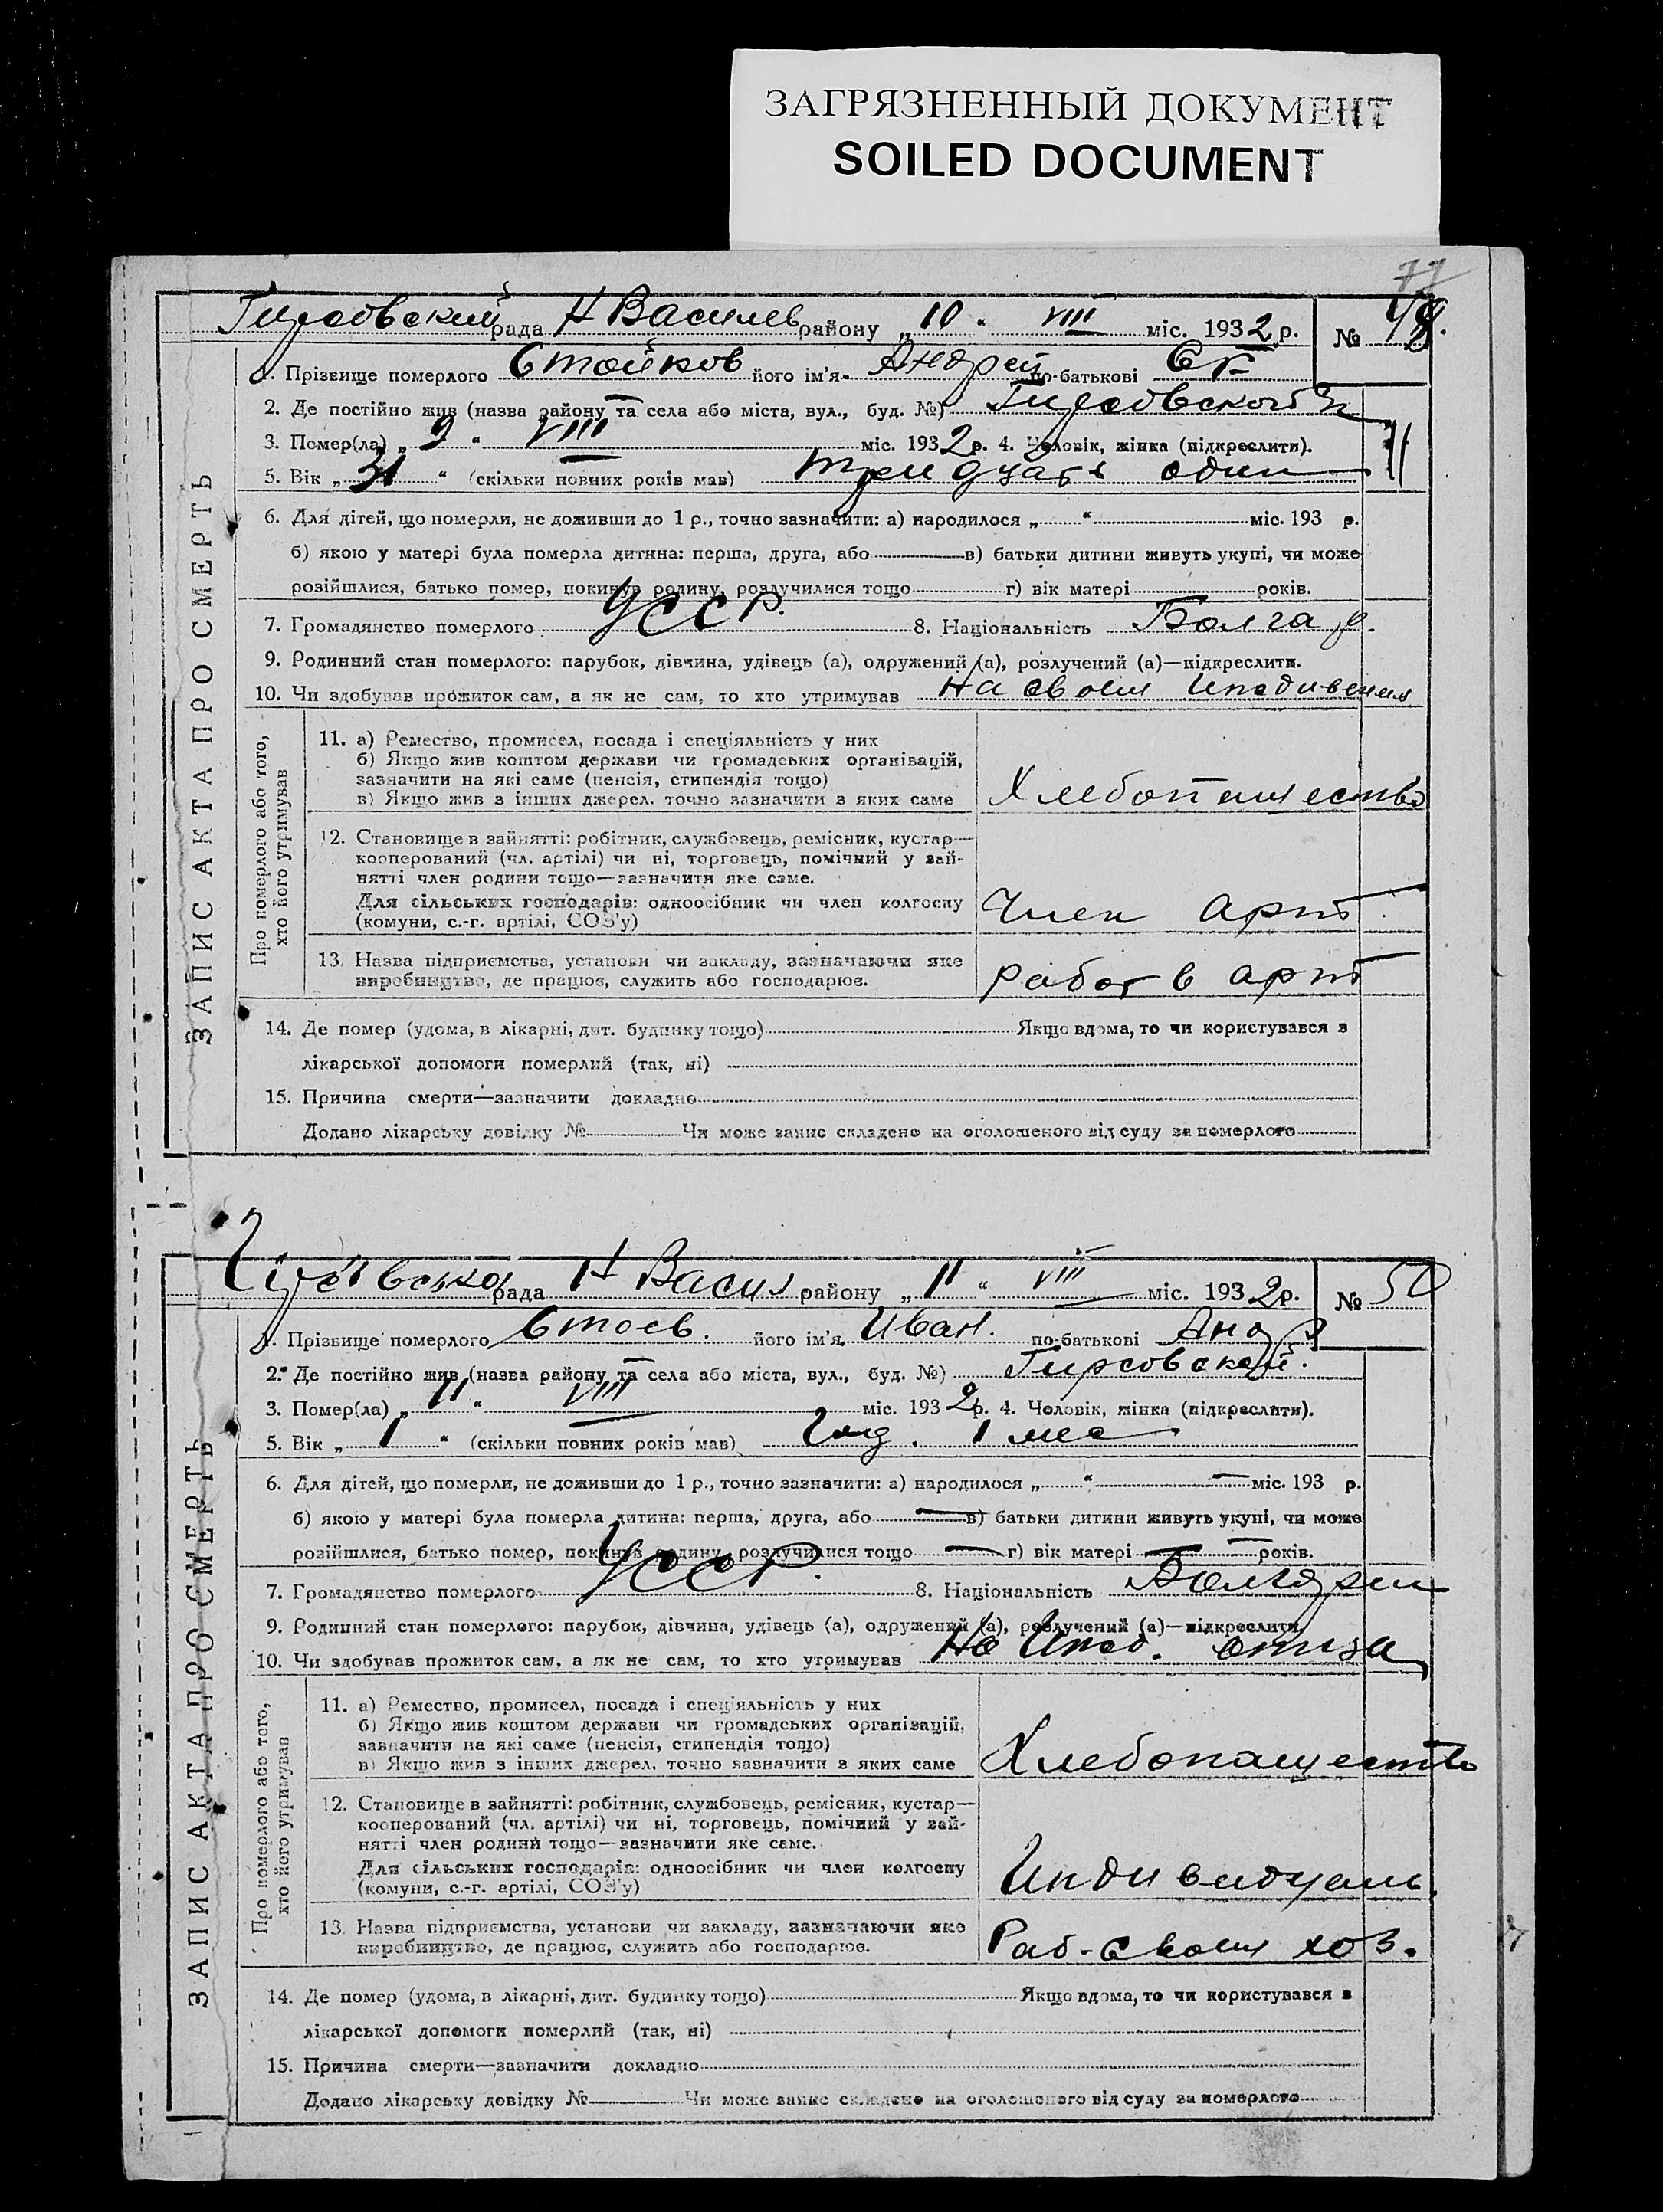 ЗАГРЯЗНЕННЫЙ ДОКУМЕНТ
SOILED DOCUMENT
77
Гирсовский рада Н Василев району „ 10 “ VIII міс. 1932 р. №
1. Прізвище померлого Стойков його ім'я Андрей по-батькові
2. Де постійно жив (назва району та села або міста, вул., буд. №) Гирсовской
3. Помер(ла) „ 9 “ VIII міс. 1932 р. 4. Чоловік, жінка (підкреслити).
5. Вік „ 31 “ (скільки повних років мав) тридцать один
6. Для дітей, що померли, не доживши до 1 р., точно зазначити: а) народилося „ “ міс. 193 р.
б) якою у матері була померла дитина: перша, друга, або в) батьки дитини живуть укупі, чи може
розійшлися, батько помер, покинув родину, розлучилися тощо г) вік матері років.
7. Громадянство померлого УССР. 8. Національність Болгар.
9. Родинний стан померлого: парубок, дівчина, удівець (а), одружений (а), розлучений (а)—підкреслити.
10. Чи здобував прожиток сам, а як не сам, то хто утримував на своем
ЗАПИС АКТА ПРО СМЕРТЬ
Про померлого або того,
хто його утримував
11. а) Ремество, промисел, посада і спеціяльність у них
б) Якщо жив коштом держави чи громадських організацій,
зазначити на які саме (пенсія, стипендія тощо)
в) Якщо жив з інших джерел. точно зазначити з яких саме Хлебопашество
12. Становище в зайнятті: робітник, службовець, ремісник, кустар—
кооперований (чл. артілі) чи ні, торговець, помічний у зай-
нятті член родини тощо—зазначити яке саме.
Для сільських господарів: одноосібник чи член колгоспу
(комуни, с.-г. артілі, СОЗ'у) Член арт
13. Назва підприємства, установи чи закладу, зазначаючи яке
виробництво, де працює, служить або господарює. работ в арт
14. Де помер (удома, в лікарні, дит. будинку тощо) Якщо вдома, то чи користувався з
лікарської допомоги померлий (так, ні)
15. Причина смерти—зазначити докладно
Додано лікарську довідку № Чи може запис складено на оголошеного від суду за померлого
рада Н Васил району „ 11 “ VIII міс. 1932 р. № 50
1. Прізвище померлого Стоев. його ім'я Иван. по-батькові Анд
2. Де постійно жив (назва району та села або міста, вул., буд. №) Гирсовской.
3. Помер(ла) „ 11 “ VIII міс. 1932 р. 4. Чоловік, жінка (підкреслити).
5. Вік „ 1 “ (скільки повних років мав) год. 1 мес
6. Для дітей, що померли, не доживши до 1 р., точно зазначити: а) народилося „ “ міс. 193 р.
б) якою у матері була померла дитина: перша, друга, або в) батьки дитини живуть укупі, чи може
розійшлися, батько помер, покинув родину, розлучилися тощо г) вік матері років.
7. Громадянство померлого УССР. 8. Національність
9. Родинний стан померлого: парубок, дівчина, удівець (а), одружений (а), розлучений (а)—підкреслити.
10. Чи здобував прожиток сам, а як не сам, то хто утримував На отца
ЗАПИС АКТА ПРО СМЕРТЬ
Про померлого або того,
хто його утримував
11. а) Ремество, промисел, посада і спеціяльність у них
б) Якщо жив коштом держави чи громадських організацій,
зазначити на які саме (пенсія, стипендія тощо)
в) Якщо жив з інших джерел. точно зазначити з яких саме Хлебопашество
12. Становище в зайнятті: робітник, службовець, ремісник, кустар—
кооперований (чл. артілі) чи ні, торговець, помічний у зай-
нятті член родини тощо—зазначити яке саме.
Для сільських господарів: одноосібник чи член колгоспу
(комуни, с.-г. артілі, СОЗ'у) Индивидуаль.
13. Назва підприємства, установи чи закладу, зазначаючи яке
виробництво, де працює, служить або господарює. Раб-своем хоз.
14. Де помер (удома, в лікарні, дит. будинку тощо) Якщо вдома, то чи користувався з
лікарської допомоги померлий (так, ні)
15. Причина смерти—зазначити докладно
Додано лікарську довідку № Чи може запис складено на оголошеного від суду за померлого